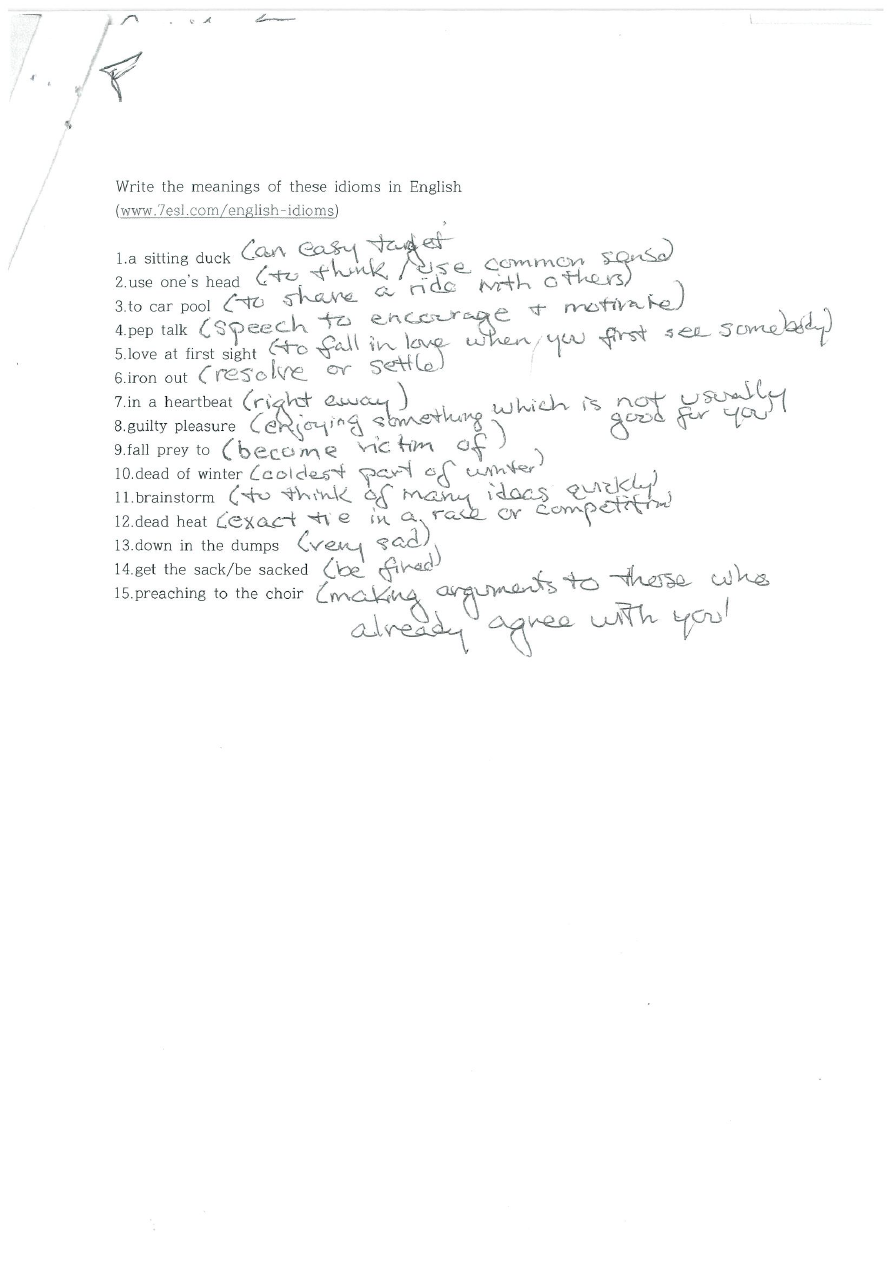 Write the meanings of these idioms in English
(www.7esl.com/english-idioms)
1.a sitting duck (an easy target
2.use one's head (to think / use common sense)
3.to car pool (to share a ride with others)
4.pep talk (speech to encourage + motivate)
5.love at first sight (to fall in love when you first see somebody)
6.iron out (resolve or settle)
7.in a heartbeat (right away)
8.guilty pleasure (enjoying something which is not usually
good for you
9.fall prey to (become victim of)
10.dead of winter (coldest part of winter)
11.brainstorm (to think of many ideas quickly)
12.dead heat (exact tie in a race or competition)
13.down in the dumps (very sad)
14.get the sack/be sacked (be fired)
15.preaching to the choir (making arguments to those who
already agree with you)